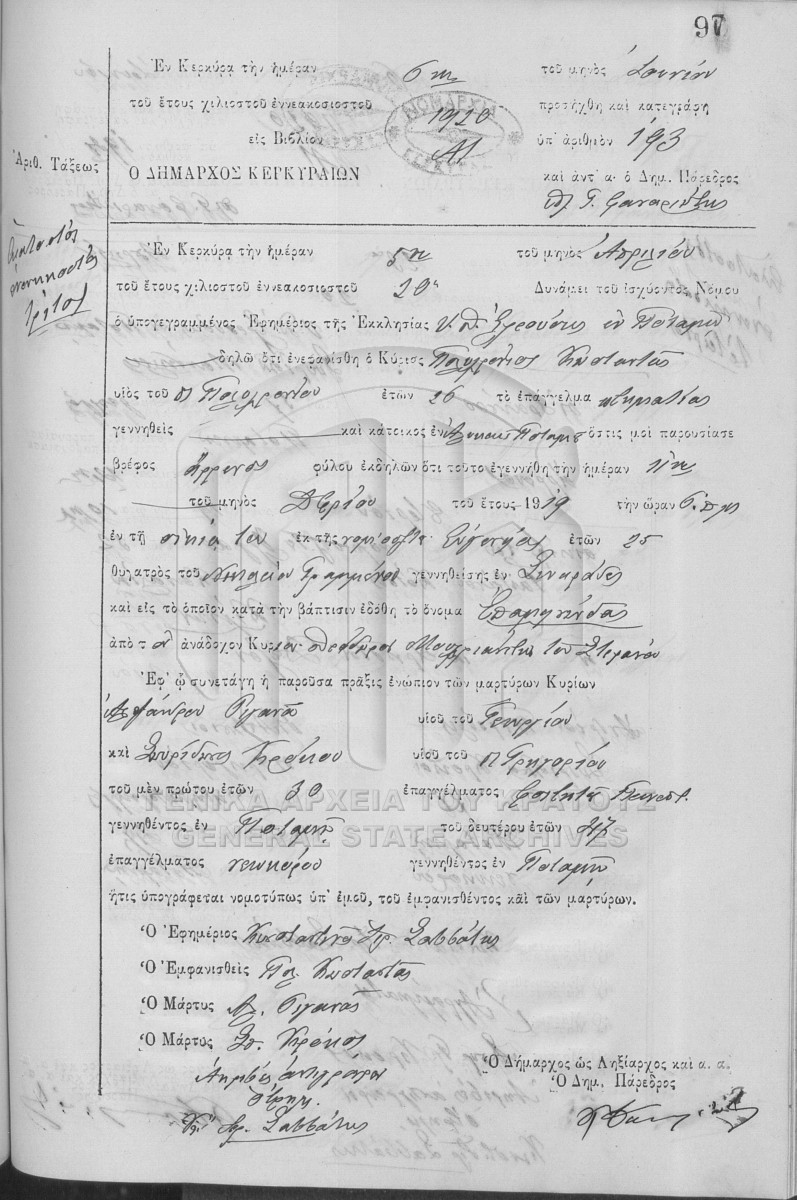 97
Ἐν Κερκύρᾳ τὴν ἡμέραν 6ην τοῦ μηνὸς Ἰουνίου
τοῦ ἔτους χιλιοστοῦ ἐννεακοσιοστοῦ 1920 προσήχθη καὶ κατεγράφη
εἰς Βιβλίον Α1 ὑπ' ἀριθμὸν 193
Ἀριθ. Τάξεως
Ο ΔΗΜΑΡΧΟΣ ΚΕΡΚΥΡΑΙΩΝ καὶ ἀντ' α· ὁ Δημ. Πάρεδρος
ΝΟΜΑΡΧΙΑ ΚΕΡΚΥΡΑΣ
Ἑκατοστός
ἐνενηκοστός
τρίτος
Ἐν Κερκύρᾳ τὴν ἡμέραν 5ην τοῦ μηνὸς Ἀπριλίου
τοῦ ἔτους χιλιοστοῦ ἐννεακοσιοστοῦ 20οῦ Δυνάμει τοῦ ἰσχύοντος Νόμου
ὁ ὑπογεγραμμένος Ἐφημέριος τῆς Ἐκκλησίας ἐν Ποταμῷ
δηλῶ ὅτι ἐνεφανίσθη ὁ Κύριος Πολυχρόνιος Κωσταντᾶς
υἱὸς τοῦ Πολυχρονίου ἐτῶν 26 τὸ ἐπάγγελμα κτηματίας
γεννηθεὶς καὶ κάτοικος ἐν Ποταμῷ ὅστις μοὶ παρουσίασε
βρέφος ἄρρενος φύλου ἐκδηλῶν ὅτι τοῦτο ἐγεννήθη τὴν ἡμέραν 11ην
τοῦ μηνὸς Δβρίου τοῦ ἔτους 1919 τὴν ὥραν 6 π.μ.
ἐν τῇ οἰκίᾳ του ἐκ τῆς νομ. συζ. Εὐγενίας ἐτῶν 25
θυγατρὸς τοῦ Γραμμένου γεννηθείσης ἐν Σιναράδες
καὶ εἰς τὸ ὁποῖον κατὰ τὴν βάπτισιν ἐδόθη τὸ ὄνομα Ἐπαμινώνδας
ἀπὸ τὸν ἀνάδοχον Κύριον Θεόδωρον τοῦ Στεφάνου
Ἐφ' ᾧ συνετάγη ἡ παροῦσα πρᾶξις ἐνώπιον τῶν μαρτύρων Κυρίων
Ἀλεξάνδρου Ριγανᾶ υἱοῦ τοῦ Γεωργίου
καὶ Σπυρίδωνος Κρόκου υἱοῦ τοῦ Γρηγορίου
τοῦ μὲν πρώτου ἐτῶν 30 ἐπαγγέλματος
ΓΕΝΙΚΑ ΑΡΧΕΙΑ ΤΟΥ ΚΡΑΤΟΥΣ
γεννηθέντος ἐν Ποταμῷ τοῦ δευτέρου ἐτῶν 27
GENERAL STATE ARCHIVES
ἐπαγγέλματος νεωκόρου γεννηθέντος ἐν Ποταμῷ
ἥτις ὑπογράφεται νομοτύπως ὑπ' ἐμοῦ, τοῦ ἐμφανισθέντος καὶ τῶν μαρτύρων.
Ὁ Ἐφημέριος Κωνσταντῖνος Σαββάτης
Ὁ Ἐμφανισθεὶς Πολ. Κωσταντᾶς
Ὁ Μάρτυς Ἀλ. Ριγανᾶς
Ὁ Μάρτυς Σπ. Κρόκος
Ὁ Δήμαρχος ὡς Ληξίαρχος καὶ α. α.
Ὁ Δημ. Πάρεδρος
Ἀκριβὲς ἀντίγραφον
Σαββάτης